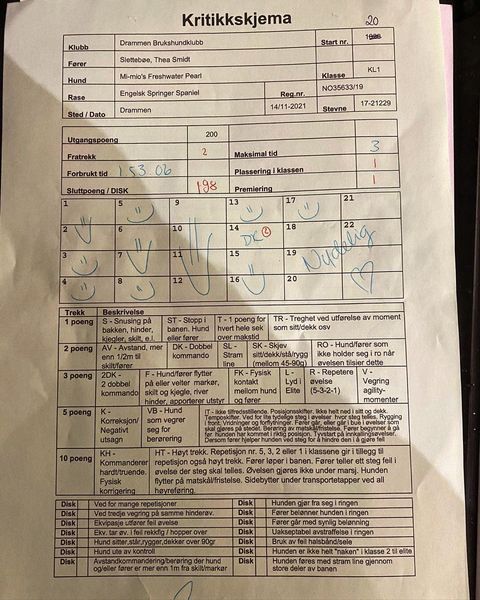 Kritikkskjema
20
Klubb Drammen Brukshundklubb Start nr.
Fører Slettebøe, Thea Smidt
Hund Mi-mio's Freshwater Pearl Klasse KL1
Rase Engelsk Springer Spaniel Reg.nr. NO35633/19
Sted / Dato Drammen 14/11-2021 Stevne 17-21229
Utgangspoeng 200
Fratrekk 2 Maksimal tid 3
Forbrukt tid 1.53.06 Plassering i klassen 1
Sluttpoeng / DISK 198 Premiering 1
1 5 9 13 17 21
2 6 10 14 DK 2 18 22
3 7 11 15 19 Nydelig
4 8 12 16 20
Trekk Beskrivelse
1 poeng S - Snusing på bakken, hinder, kjegler, skilt, e.l. ST - Stopp i banen. Hund eller fører T - 1 poeng for hvert hele sek over makstid TR - Treghet ved utførelse av moment som sitt/dekk osv
2 poeng AV - Avstand, mer enn 1/2m til skilt/fører DK - Dobbel kommando SL - Stram line SK - Skjev sitt/dekk/stå/rygg (mellom 45-90g) RO - Hund/fører som ikke holder seg i ro når øvelsen tilsier dette
3 poeng 2DK - 2 dobbel kommando F - Hund/fører flytter på eller velter markør, skilt og kjegle, river hinder, apporterer utstyr FK - Fysisk kontakt mellom hund og fører L - Lyd i Elite R - Repetere øvelse (5-3-2-1) V - Vegring agility-momenter
5 poeng K - Korreksjon/ Negativt utsagn VB - Hund som vegrer seg for berørering IT - Ikke tilfredsstillende. Posisjonsskifter. Ikke helt ned i sitt og dekk. Temposkifter. Ved for lite tydelige steg i øvelser hvor steg telles. Rygging i front. Vridninger og forflytninger.
10 poeng KH - Kommanderer hardt/truende. Fysisk korrigering HT - Høyt trekk. Repetisjon nr. 5, 3, 2 eller 1 i klassene gir i tillegg til repetisjon også høyt trekk. Fører løper i banen. Fører teller ett steg feil i øvelse der steg skal telles. Øvelsen gjøres ikke under marsj. Hunden flytter på matskål/fristelse. Sidebytter under transportetapper ved all høyreføring.
Disk Ved for mange repetisjoner Disk Hunden gjør fra seg i ringen
Disk Ved tredje vegring på samme hinderøv. Disk Fører belønner hunden i ringen
Disk Ekvipasje utfører feil øvelse Disk Fører går med synlig belønning
Disk Ekv. tar øv. i feil rekkdlg / hopper over Disk Uakseptabel avstraffelse i ringen
Disk Hund sitter,står,rygger,dekker over 90gr Disk Bruk av feil halsbånd/sele
Disk Hund ute av kontroll Disk Hunden er ikke helt "naken" i klasse 2 til elite
Disk Avstandkommandering/berøring der hund og/eller fører er mer enn 1m fra skilt/markør Disk Hunden føres med stram line gjennom store deler av banen